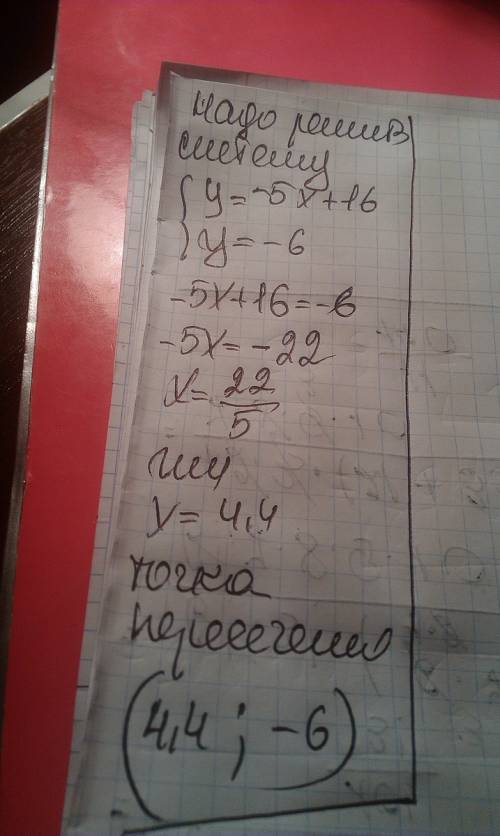 надо решив
систему
{ y = -5x+16
y = -6
-5x+16=-6
-5x = -22
x = 22/5
или
x = 4,4
точка
пересечению
(4,4 ; -6)